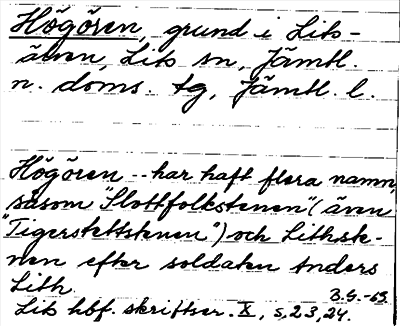 Högören, grund i Lits-
älven, Lits sn, Jämtl.
n. doms. tg, Jämtl. l.
Högören -- har haft flera namn,
såsom "Slottfolkstenen" (även
"Tigerstettstenen") och Lithste-
nen efter soldaten Anders
Lith.
B.G.-63.
Lits hbf. skriftser. X, s, 23, 24.